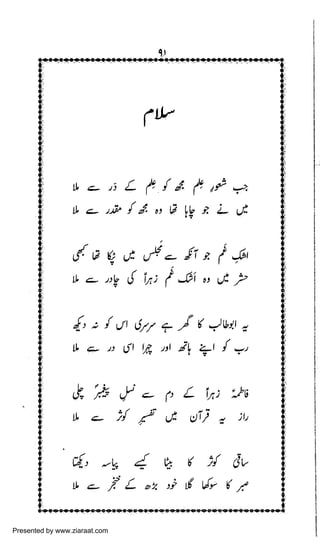 ۹۱
سلام
جب شعورِ علم مجھ کو علم کے دَر سے ملا
میں نے جو چاہا تھا وہ مجھ کو مقدر سے ملا
اشکِ غم جو آنکھ سے مجلس میں ٹپکا تھا کبھی
حشر میں وہ اشکِ غم زہراؑ کی چادر سے ملا
یہ ابوطالب کا گھر ہے سرسری اس کو نہ دیکھ
رب کو اپنے ہاتھ اور چہرا اسی در سے ملا
فاطمہؑ زہراؑ کے دم سے نسلِ پیغمبرؐ چلی
راز یہ قرآن میں تفسیرِ کوثر سے ملا
ساقیٔ کوثر کا بیٹا کیسے پیاسہ دیکھتا
صبر کا سوکھا گلا خود بڑھ کے خنجر سے ملا
Presented by www.ziaraat.com